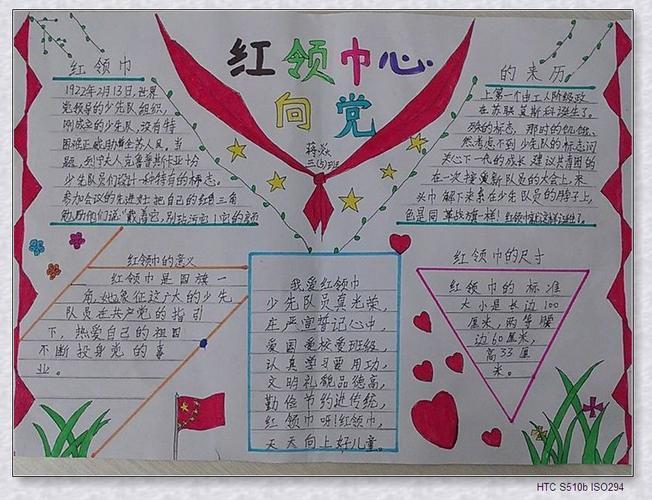 红领巾心
向党
蒋焱
三(5)班
红领巾
1922年2月13日,世界
党领导的少先队组织,
刚成立的少先队,没有特
困难正威助苏人民,当
题,列宁夫人克鲁普斯卡亚十分
少先队员们设计一种特有的标志。
参加会议的先进社把自己的红色三角
勉励他们说"戴着它,别玷污它!它的颜
的来历
上第一个由工人阶级政
在苏联莫斯科诞生了。
殊的标志,那时的饥饿、
然考虑不到少先队的标志问
关心下一代的成长,建议共青团的
在一次接受新队员的大会上来
头巾解下来系在少先队员的脖子上,
色是同革战旗一样!红领巾就这样诞生了。
红领巾的意义
红领巾是国旗一
角,她象征这广大的少先
队员在共产党的指引
下,热爱自己的祖国
不断投身党的事
业。
我爱红领巾
少先队员真光荣,
庄严宣誓记心中,
爱国爱校爱班级,
认真学习要用功,
文明礼貌品德高,
勤俭节约进传统,
红领巾呀!红领巾,
天天向上好儿童。
红领巾的尺寸
红领巾的标准
大小是长边100
厘米,两等腰
边60厘米,
高33厘
米。
HTC S510b ISO294